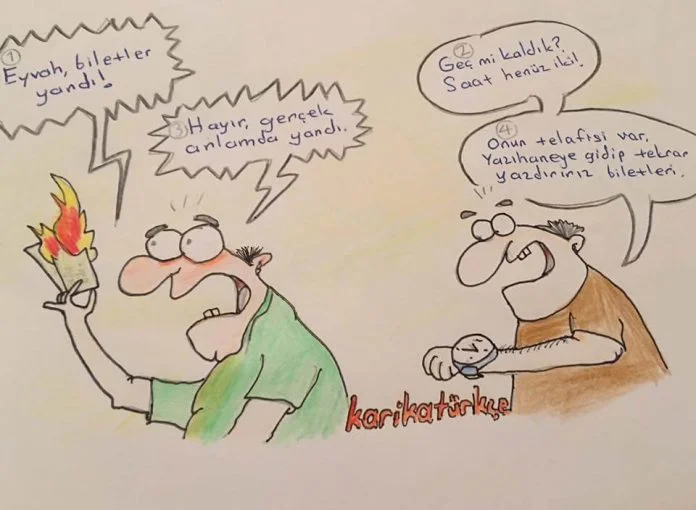 1
Eyvah, biletler
yandı!
2
Geç mi kaldık?
Saat henüz iki!
3 Hayır, gerçek
anlamda yandı.
4
Onun telafisi var,
Yazıhaneye gidip tekrar
yazdırırız biletleri.
karikatürkçe